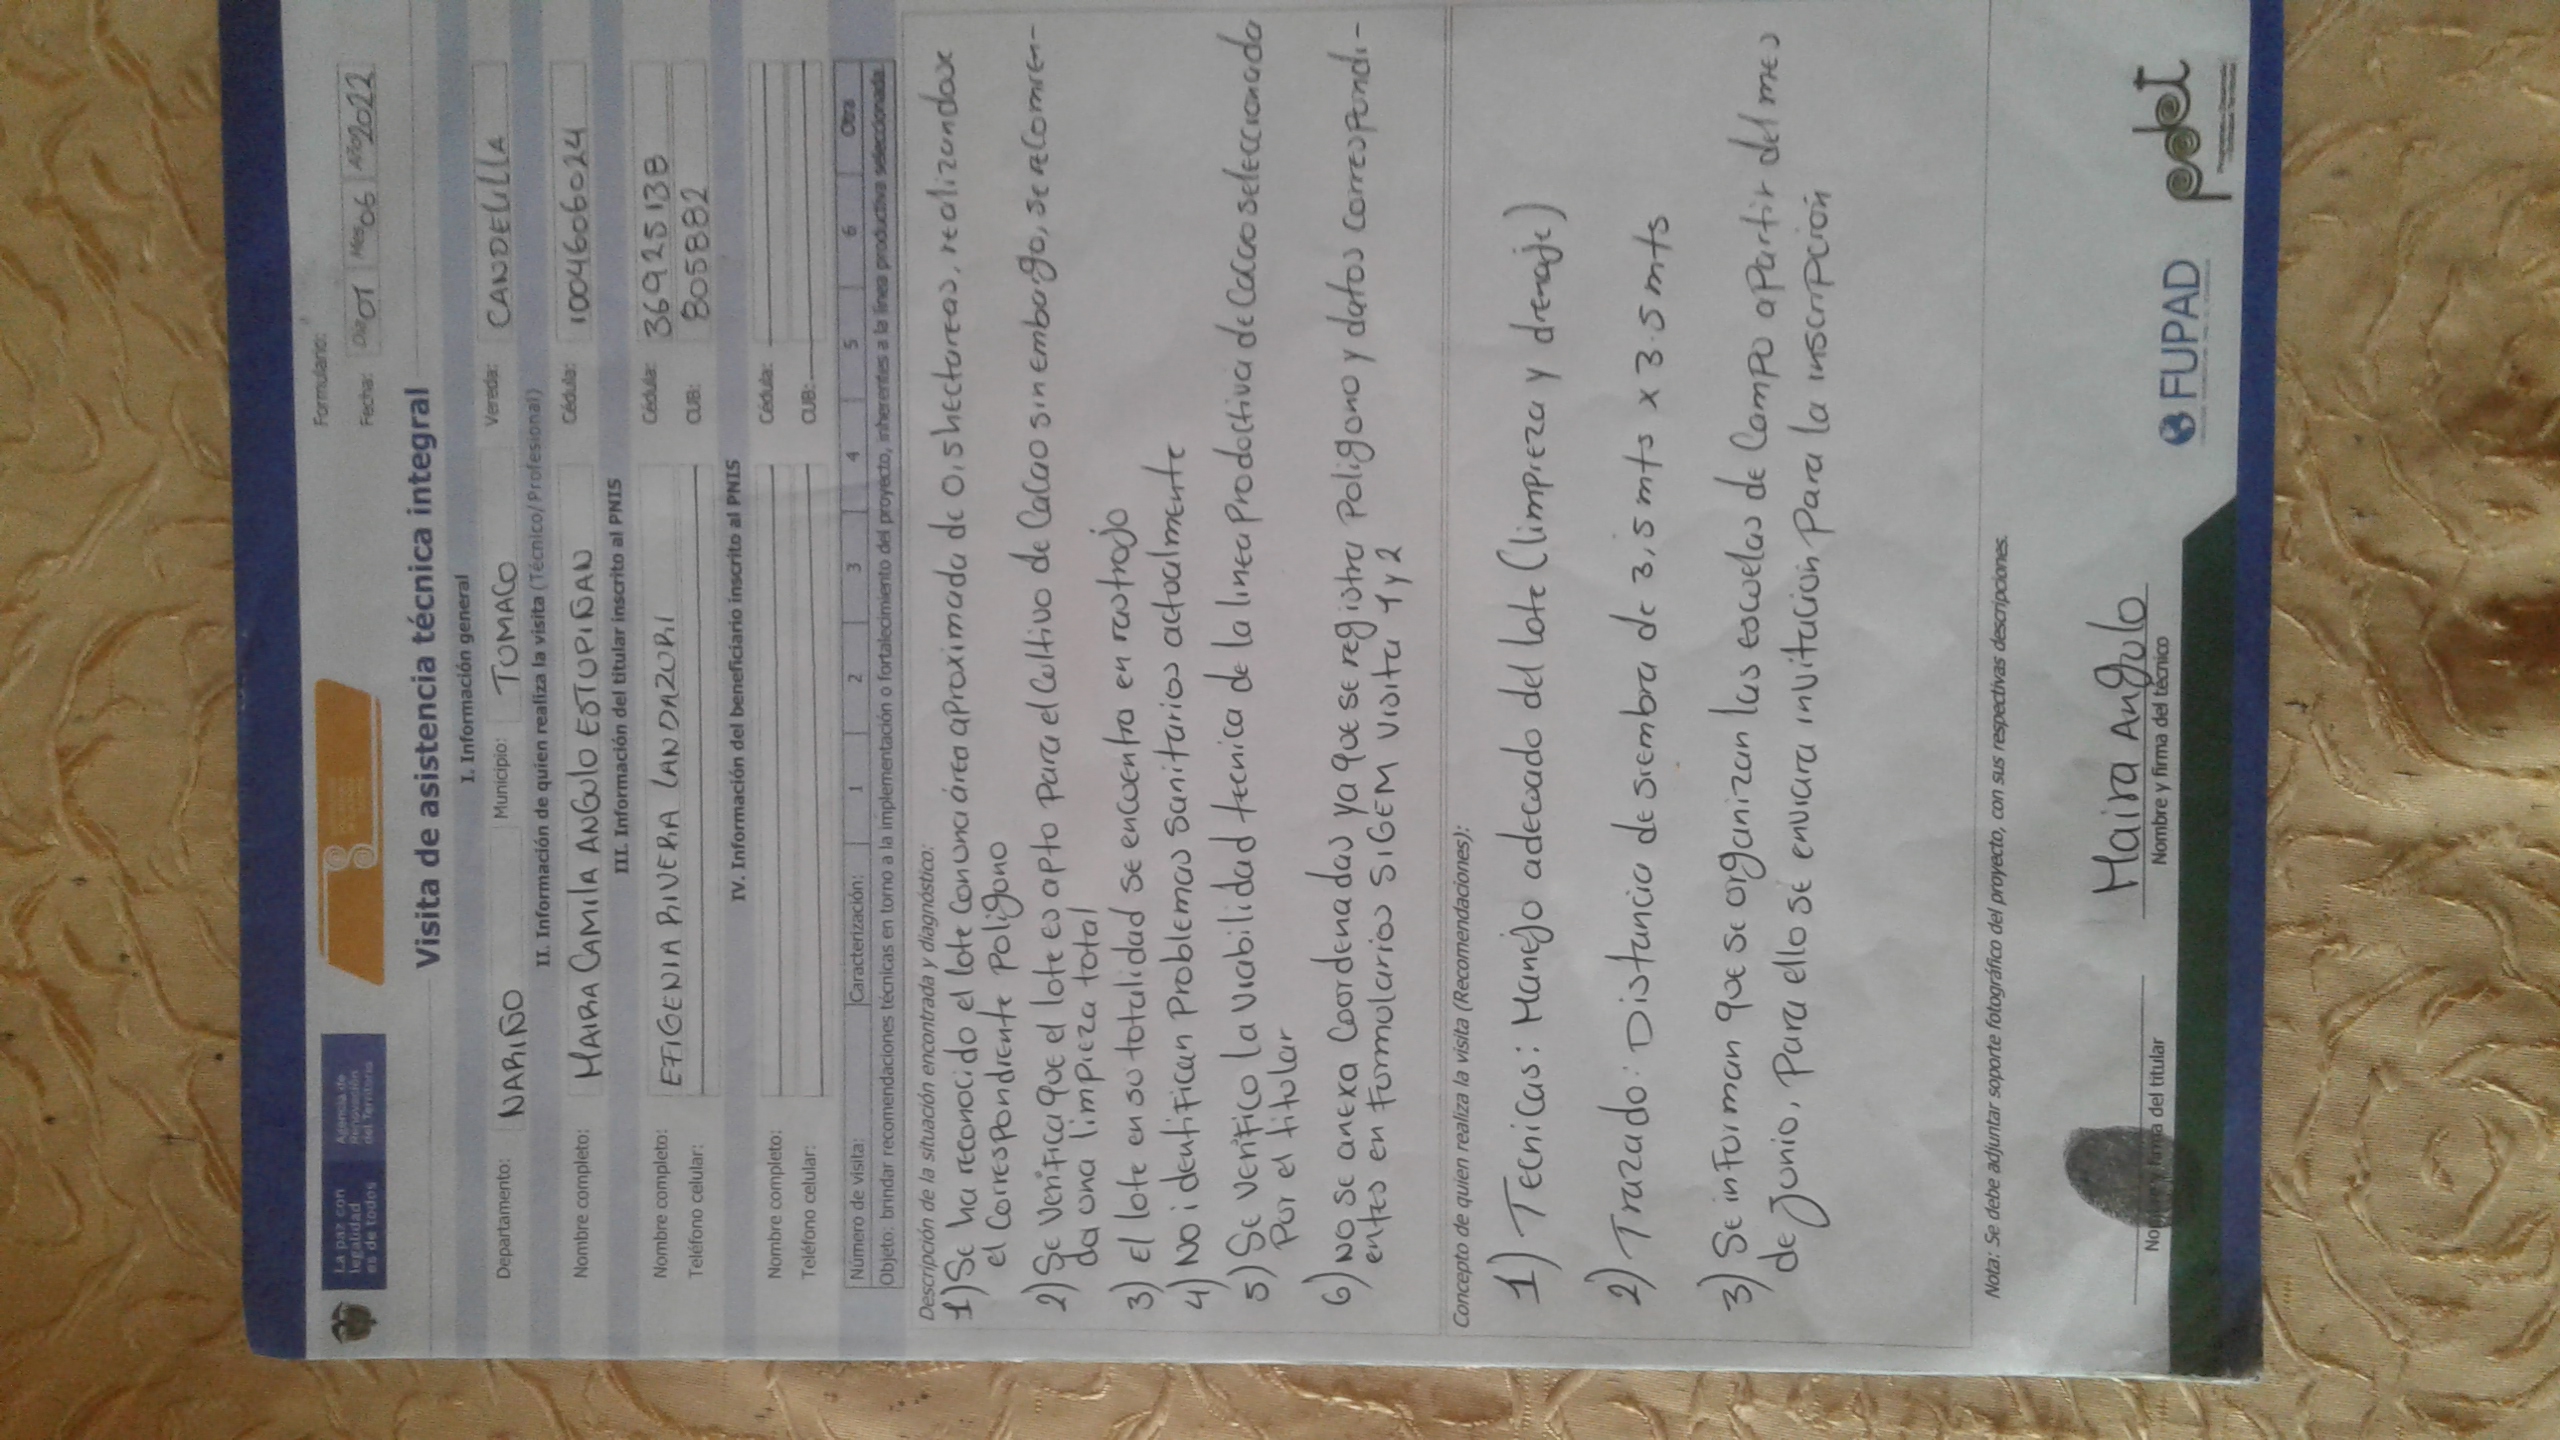 La paz con
legalidad
es de todos
Agencia de
Renovación
del Territorio
Formulario:
Fecha: Día 01 Mes 06 Año 2022
Visita de asistencia técnica integral
I. Información general
Departamento: NARIÑO Municipio: TUMACO Vereda: CANDELILLA
II. Información de quien realiza la visita (Técnico/Profesional)
Nombre completo: MAIRA CAMILA ANGULO ESTUPIÑAN Cédula: 1004606024
III. Información del titular inscrito al PNIS
Nombre completo: EFIGENIA RIVERA LANDAZURI Cédula: 36925138
Teléfono celular: CUB: 805882
IV. Información del beneficiario inscrito al PNIS
Nombre completo: Cédula:
Teléfono celular: CUB:
Número de visita: Caracterización: 1 2 3 4 5 6 Otra
Objeto: brindar recomendaciones técnicas en torno a la implementación o fortalecimiento del proyecto, inherentes a la línea productiva seleccionada.
Descripción de la situación encontrada y diagnóstico:
1) Se ha reconocido el lote con una área aproximada de 0,5 hectareas, realizandose
el correspondiente Poligono
2) Se verifica que el lote es apto para el cultivo de Cacao sin embargo, se recomien-
da una limpieza total
3) El lote en su totalidad se encuentra en rastrojo
4) No identifican Problemas Sanitarios actualmente
5) Se verifico la viabilidad tecnica de la linea Productiva de Cacao seleccionada
Por el titular
6) No se anexa Coordenadas ya que se registra Poligono y datos correspondi-
entes en Formularios SIGEM visita 1 y 2
Concepto de quien realiza la visita (Recomendaciones):
1) Tecnicas: Manejo adecuado del lote (limpieza y drenaje)
2) Trazado: Distancia de siembra de 3,5 mts x 3.5 mts
3) Se informan que se organizan las escuelas de Campo apartir del mes
de junio, Para ello se enviara invitacion para la inscripción
Nota: Se debe adjuntar soporte fotográfico del proyecto, con sus respectivas descripciones.
Maira Angulo
Nombre y firma del titular
Nombre y firma del técnico
FUPAD
pdet